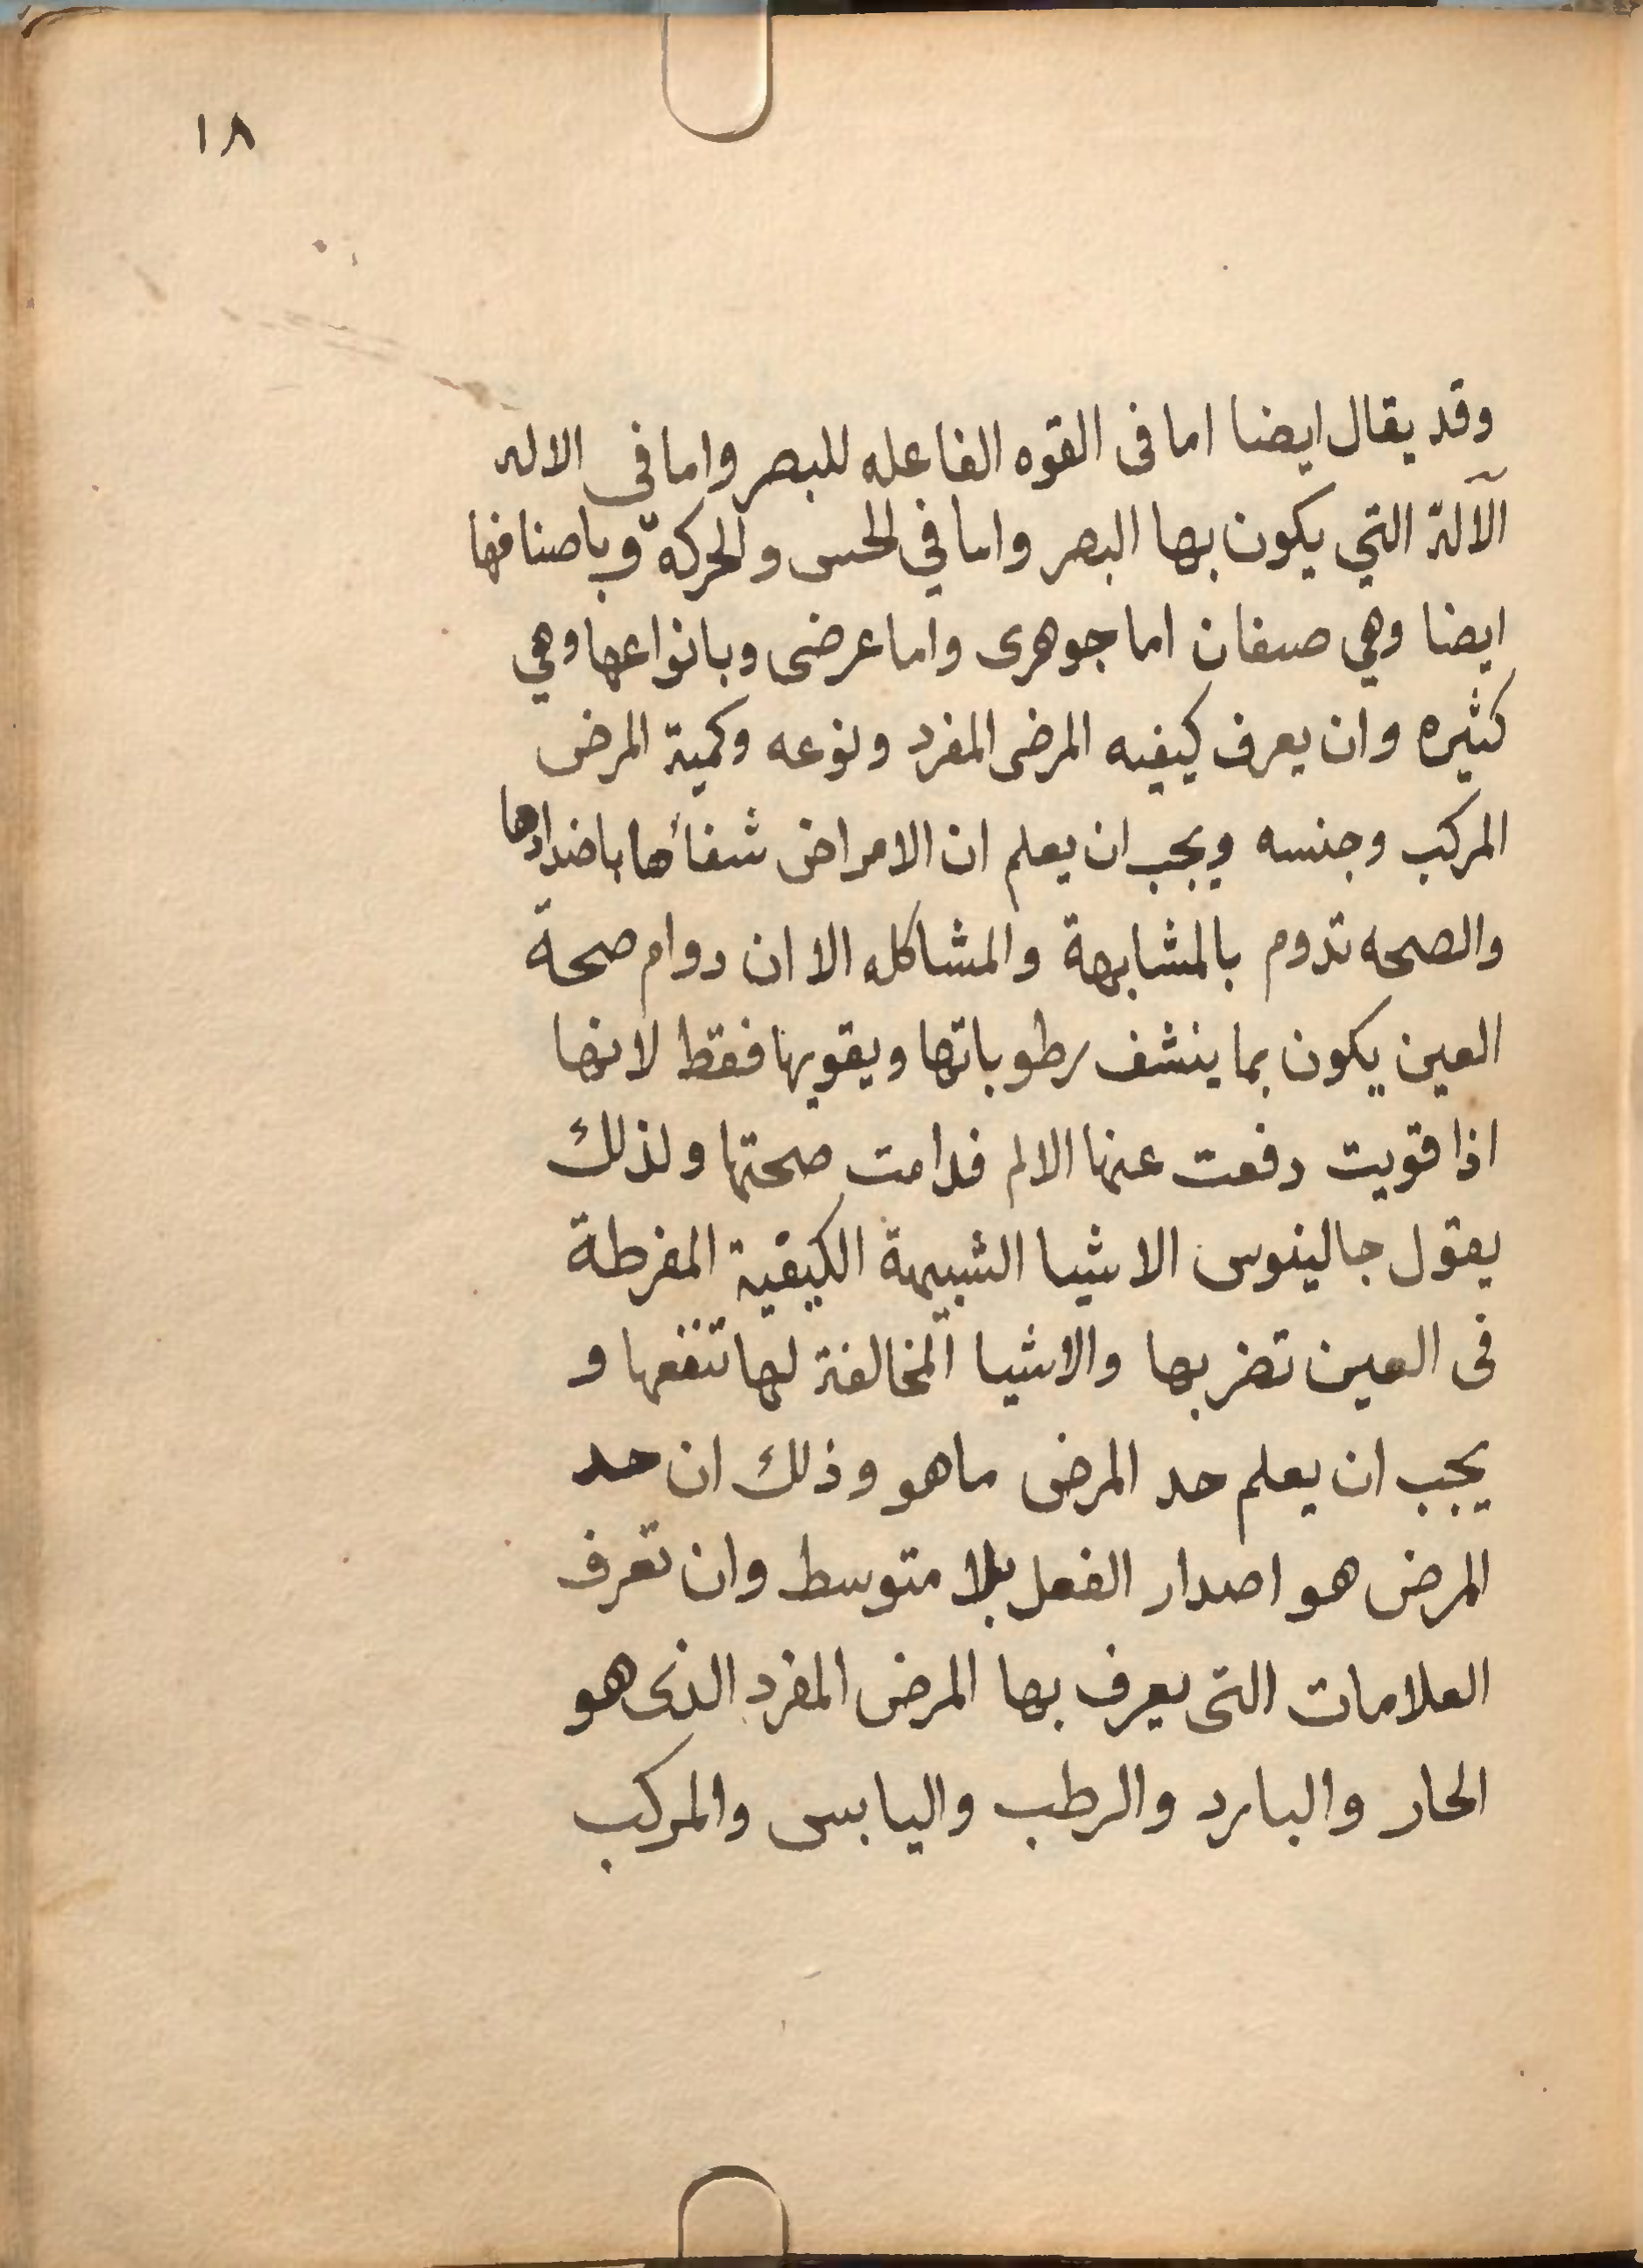 ١٨
وقد يقال ايضا اما فى القوه الفاعله للبصر واما في الاله
الآلة التي يكون بها البصر واما في الحس والحركة وباصنافها
ايضا وهي صنفان اما جوهرى واما عرضى وبانواعها وهي
كثيره وان يعرف كيفيه المرض المفرد ونوعه وكمية المرض
المركب وجنسه ويجب ان يعلم ان الامراض شفأها باضدادها
والصحه تدوم بالمشابهة والمشاكله الا ان دوام صحة
العين يكون بما ينشف رطوباتها ويقويها فقط لانها
اذا قويت دفعت عنها الالم فدامت صحتها ولذلك
يقول جالينوس الاشيا الشبيهة الكيفية المفرطة
فى العين تضر بها والاشيا المخالفة لها تنفعها و
يجب ان يعلم حد المرض ما هو وذلك ان حد
المرض هو اصدار الفعل بلا متوسط وان تعرف
العلامات التى يعرف بها المرض المفرد الذى هو
الحار والبارد والرطب واليابس والمركب